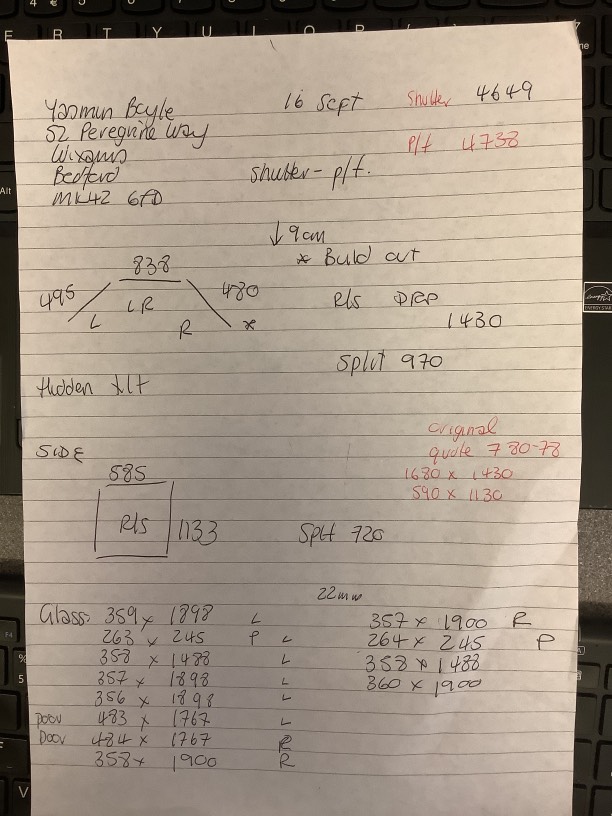 Yasmin Boyle
16 Sept
Shutter 4649
52 Peregrine Way
P/f 4738
Wixams
Bedford
Shutter - p/f.
MK42 6AD
↓ 9cm
* Build out
838
495
480
L
LR
R
*
R/s DROP
1430
Split 970
Hidden tilt
original
quote 780-78
1680 x 1430
590 x 1130
SIDE
585
R/s
1133
Split 720
22mm
Glass. 359 x 1898 L
357 x 1900 R
263 x 245 P L
264 x 245 P
358 x 1488 L
358 x 1488
357 x 1898 L
360 x 1900
356 x 1898 L
Door 483 x 1767 L
Door 484 x 1767 R
358 x 1900 R